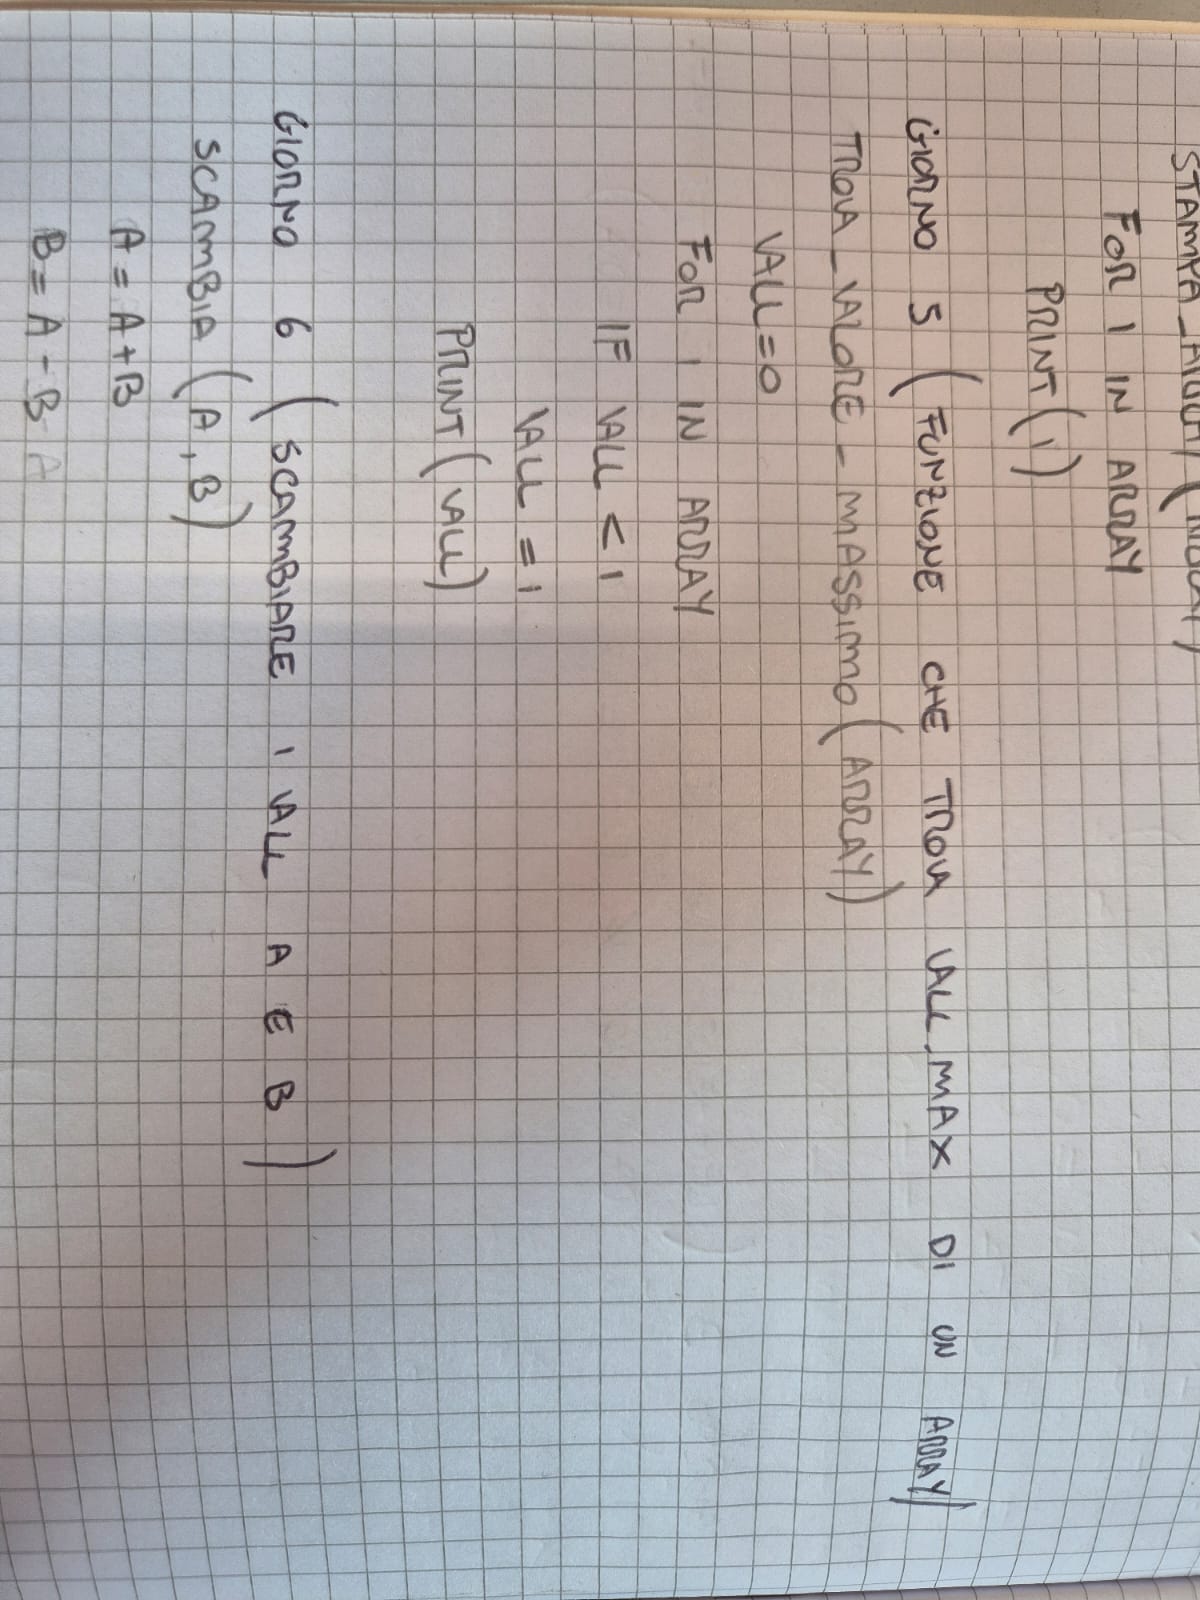 FOR I IN ARRAY
PRINT(I)
GIORNO 5 (FUNZIONE CHE TROVA VALL.MAX DI UN ARRAY)
TROVA_VALORE_MASSIMO(ARRAY)
VALL=0
FOR I IN ARRAY
IF VALL < I
VALL = I
PRINT(VALL)
GIORNO 6 (SCAMBIARE I VALL A E B)
SCAMBIA (A,B)
A = A+B
B = A-B